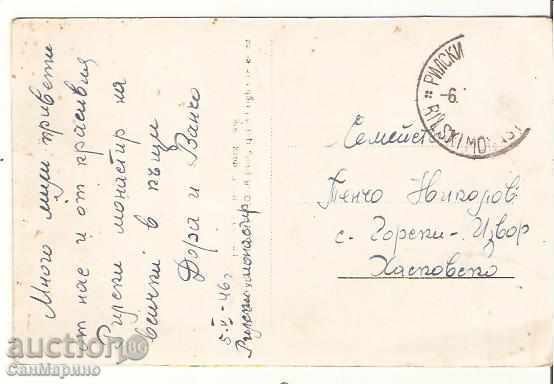 Много мили привети
от нас и от красивия
Рилски монастир на
всички в къщи
Дора и Ванчо
5-V-46г
Рилски монастир
РИЛСКИ
-6.
RILSKI MON
Семейст
Пенчо Никоров
с. Горски-Извор
Хасковско
auction
СанМарино